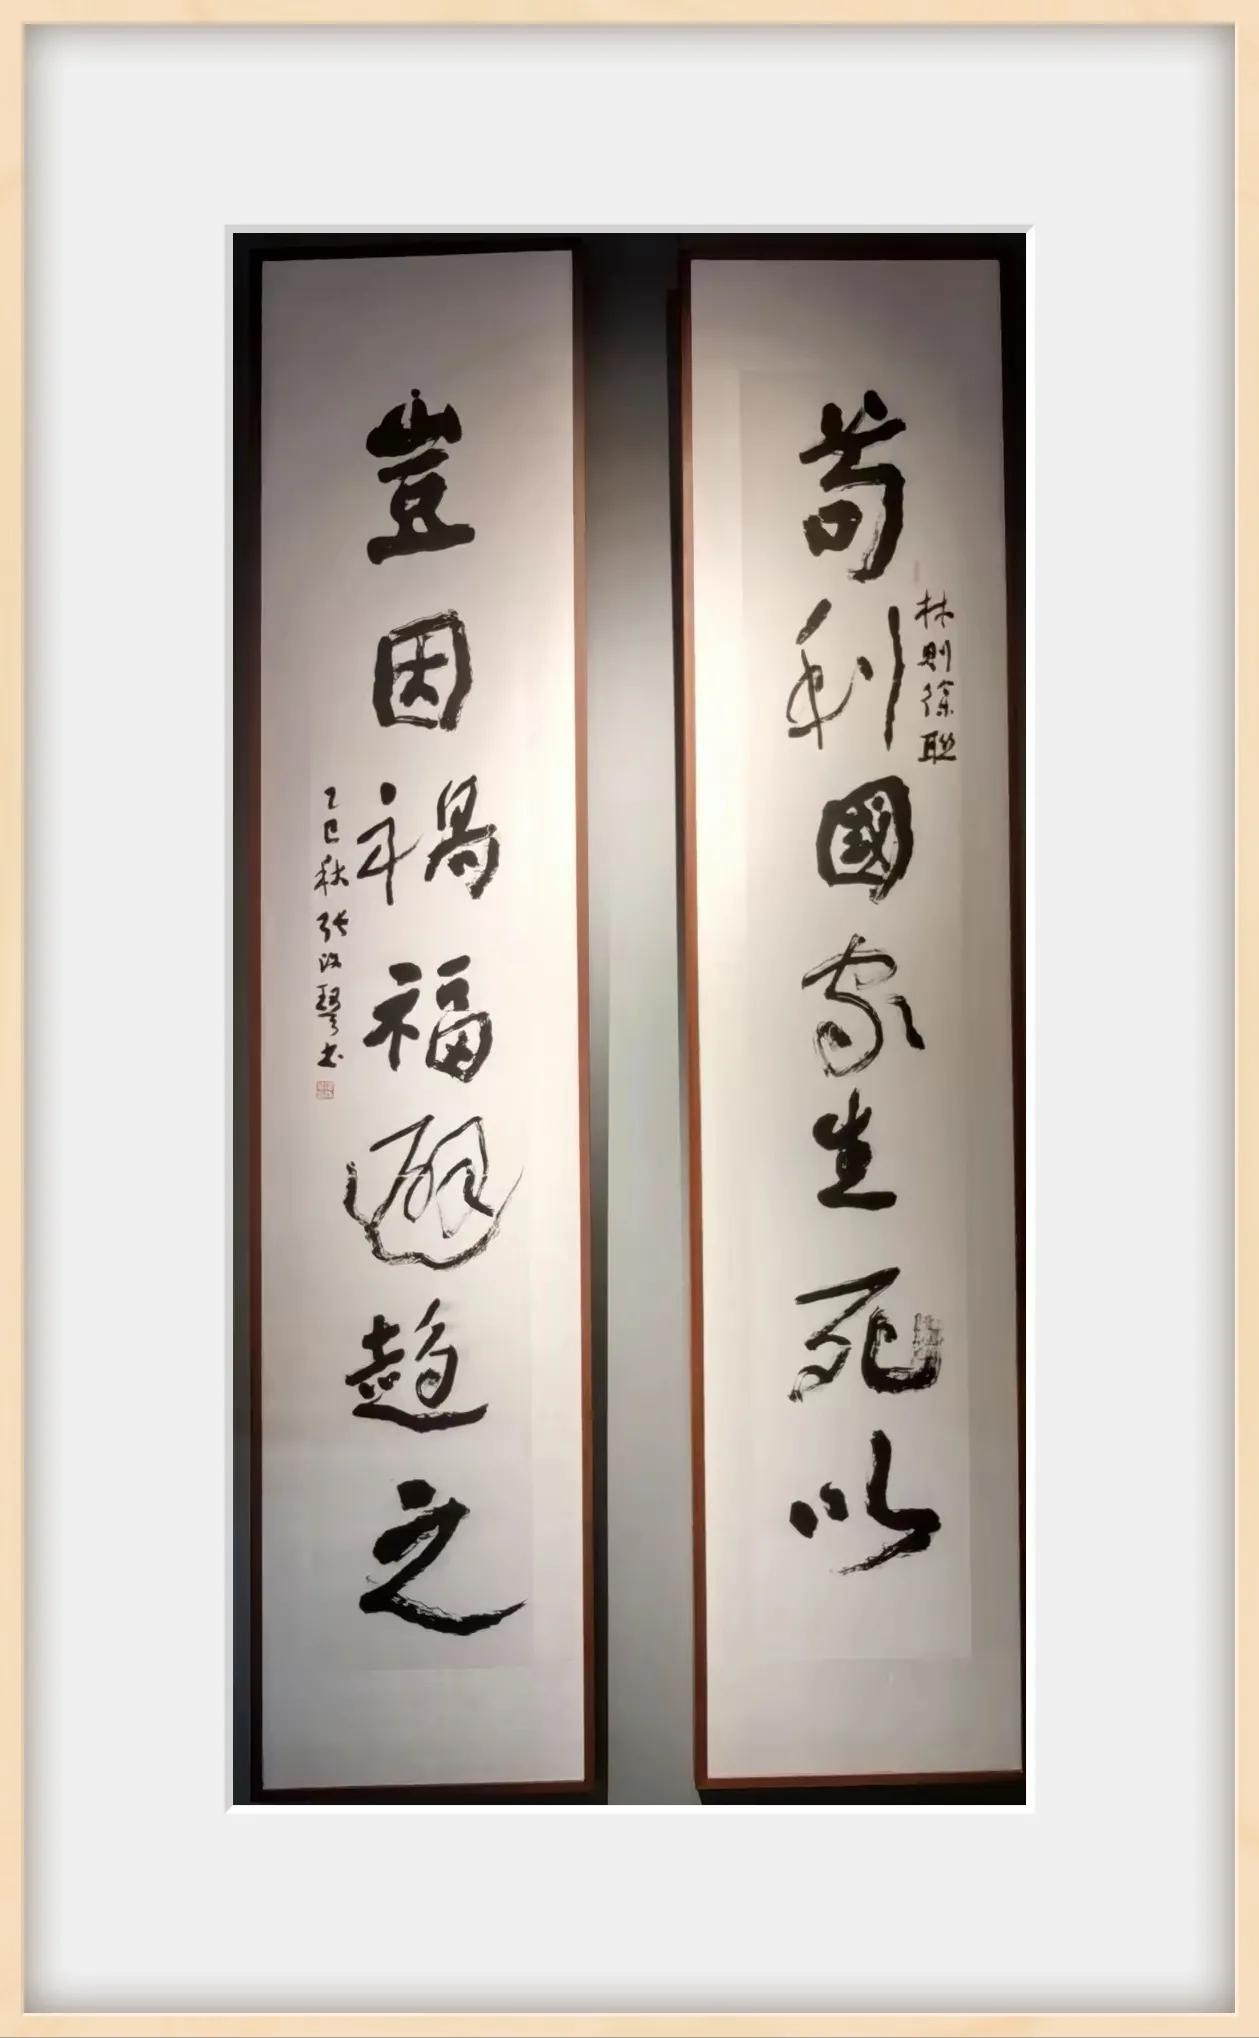 苟利國家生死以
林則徐聯
豈因禍福避趨之
乙巳秋張改琴书